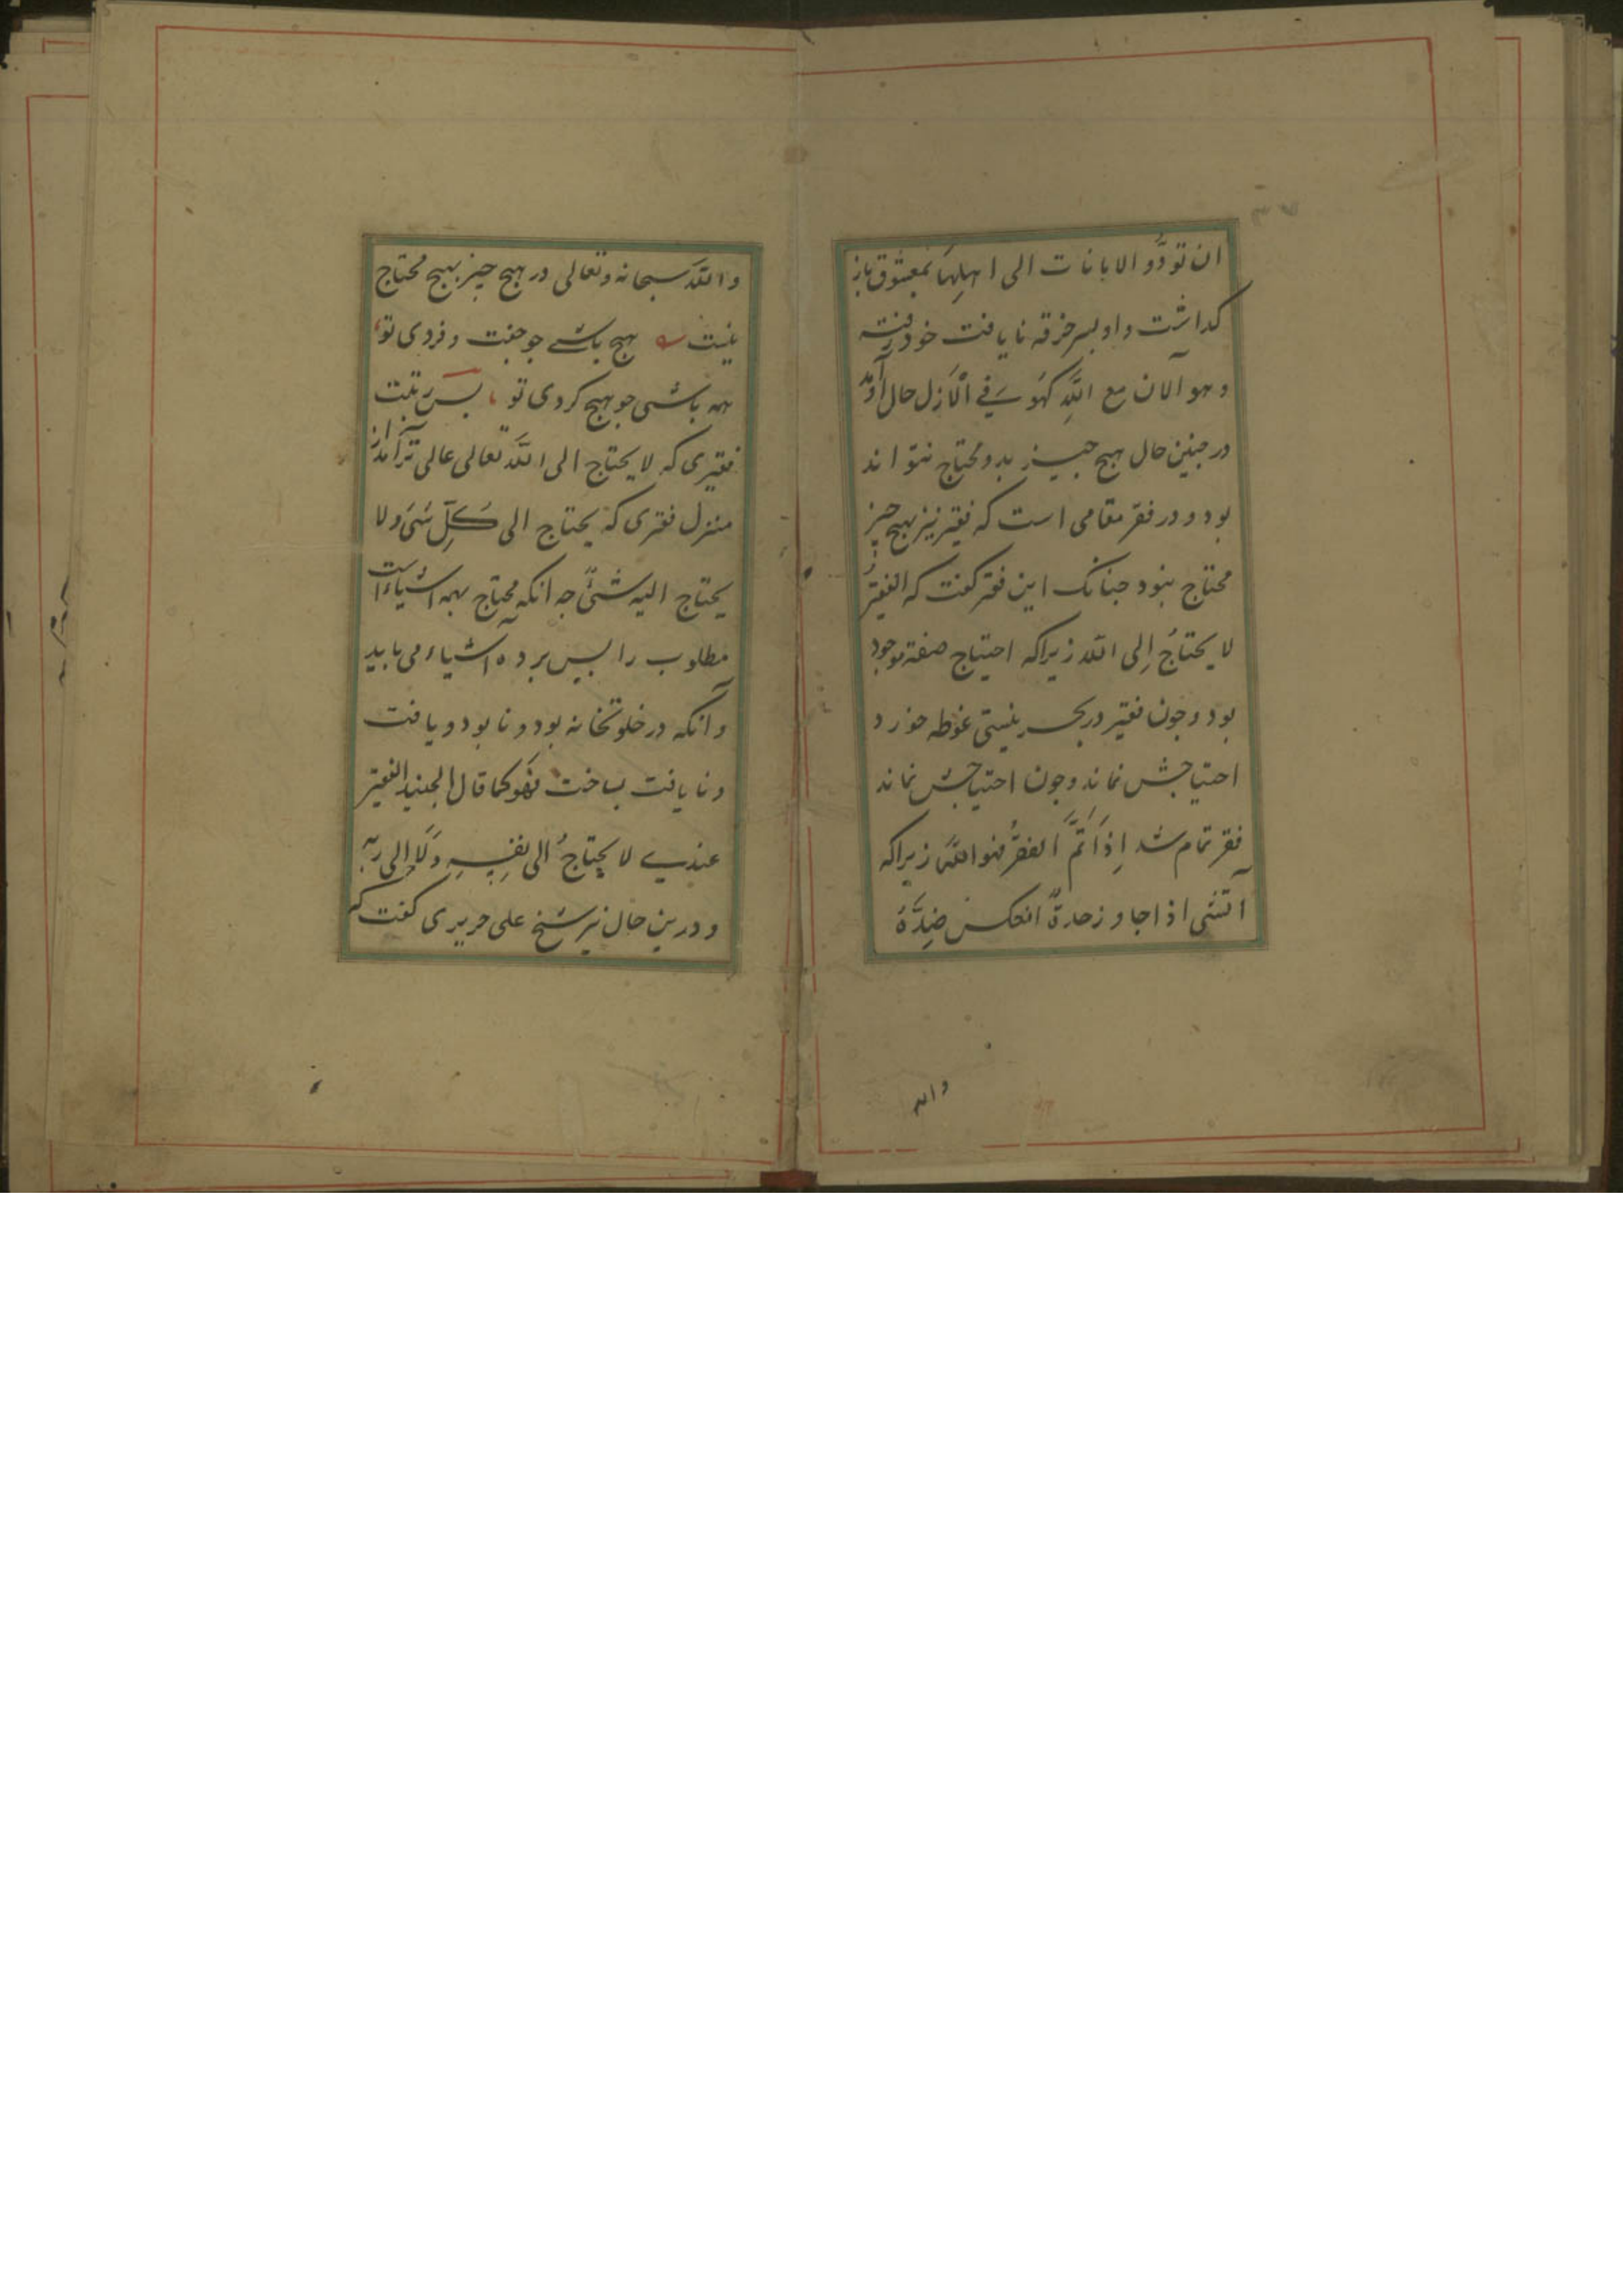 ان تودّو الامانات الی اهلها بمعشوق باز
کذاشت و او بسر خرقه نایافت خود رفته
و هو الآن مع اللّه کهو فی الازل حال او آمد
در جنین حال هیج جیز بدو محتاج نتواند
بود و در فقر مقامی است که فقیر نیز بهیج جیز
محتاج نبود جنانک این فقیر کفت که الفقیر
لا یحتاجُ إلی اللّه زیراکه احتیاج صفة موجود
بود و جون فقیر در بحر نیستی غوطه خورد
احتیاجش نماند و جون احتیاجش نماند
فقر تمام شد إذا تمَّ الفقرُ فهو اللّه زیراکه
الشی اذا جاوز حدهُ انعکس ضِدَّهُ
والله
و اللّه سبحانه و تعالی در هیج جیز بهیج محتاج
نیست هیج باشی جو جفت و فردی تو
همه باشی جو هیج کردی تو بس رتبت
فقیری که لا یحتاج الی اللّه تعالی عالی تر آمد از
منزل فقیری که یحتاج الی کلِّ شیٔ ولا
یحتاج الیه شیٔ جه آنکه محتاج بهمه اشیاء است
مطلوب را بس برده اشیاء می یابد
و آنکه در خلوتخانه بود و نابود و یافت
و نایافت بساخت فهو کما قال الجنید الفقیر
عندی لا یحتاجُ الی نفسِهِ ولا إلی ربه
و درین حال نیز شیخ علی حریری کفت که